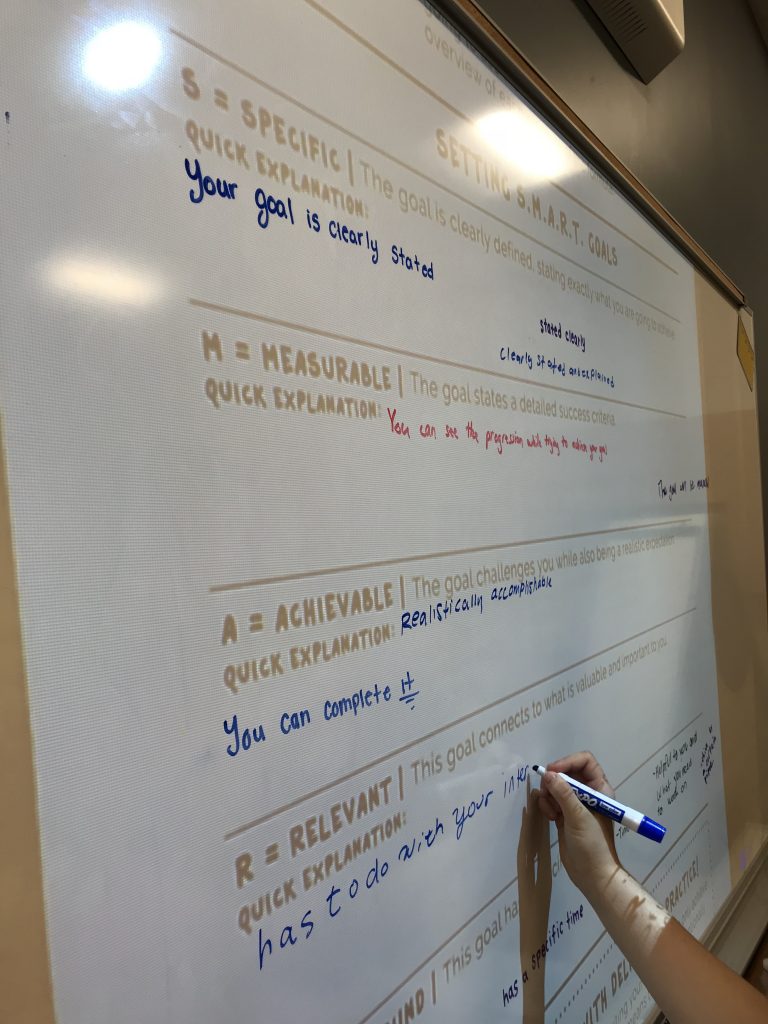 overview of
SETTING S.M.A.R.T. GOALS
S = SPECIFIC | The goal is clearly defined, stating exactly what you are going to achieve
QUICK EXPLANATION:
Your goal is clearly stated
stated clearly
Clearly stated and explained
M = MEASURABLE | The goal states a detailed success criteria
QUICK EXPLANATION:
You can see the progression while trying to achieve your goal
The goal can be
A = ACHIEVABLE | The goal challenges you while also being a realistic expectation
QUICK EXPLANATION:
Realistically accomplishable
You can complete it
R = RELEVANT | This goal connects to what is valuable and important to you
QUICK EXPLANATION:
has to do with your inter
-Helpful to you and
what you need
to work on
UND | This goal ha
has a specific time
PRACTICE!
ITH DEL
EXPO